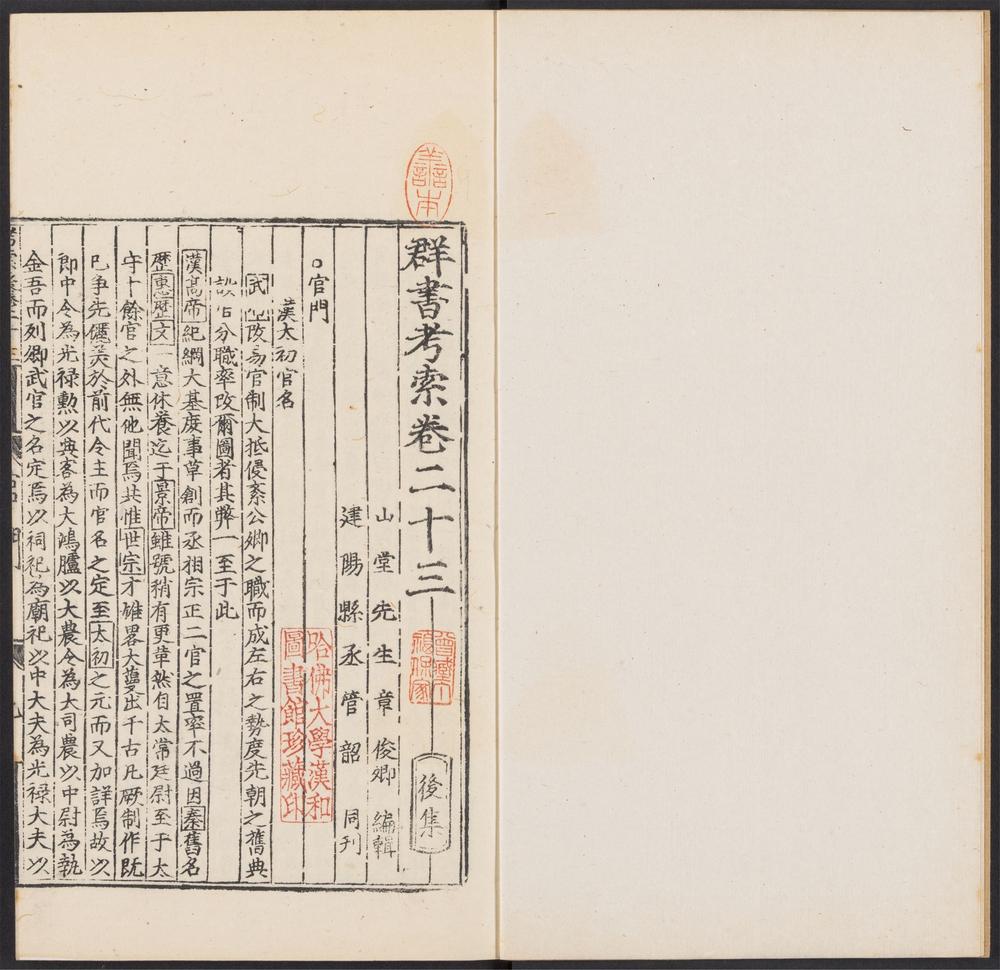 善本
群書考索卷二十三
後集
山堂先生章俊卿 編輯
建陽縣丞管韶 同刊
哈佛大學漢和
圖書館珍藏印
官門
漢太初官名
武 改易官制大抵優紊公卿之職而成左右之勢度先朝之舊典
分職率改爾圖者其弊一至于此
漢高帝紀綱大基庶事草創而丞相宗正二官之置率不過因秦舊名
歷惠歷文一意休養迄于景帝雖號稍有更革然自太常廷尉至于太
守十餘官之外無他聞焉共惟世宗才雄畧大夐出千古凡厥制作旣
已爭先儷美於前代令主而官名之定至太初之元而又加詳焉故以
郎中令為光禄勳以典客為大鴻臚以大農令為大司農以中尉為執
金吾而列卿武官之名定焉以祠祀為廟祀以中大夫為光禄大夫以